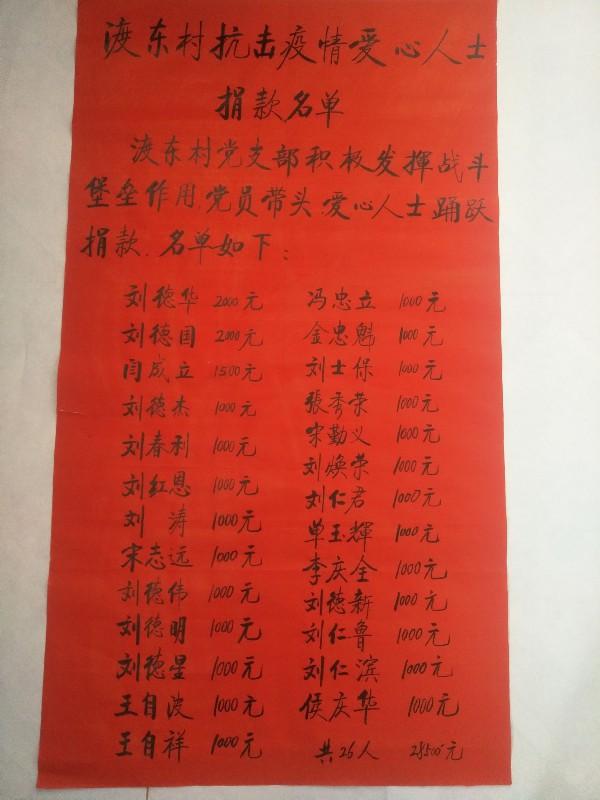 渡东村抗击疫情爱心人士
捐款名单
渡东村党支部积极发揮战斗
堡垒作用,党员带头,爱心人士踊跃
捐款.名单如下:
刘德华 2000元
刘德国 2000元
闫成立 1500元
刘德杰 1000元
刘春利 1000元
刘红恩 1000元
刘涛 1000元
宋志远 1000元
刘德伟 1000元
刘德明 1000元
刘德星 1000元
王自波 1000元
王自祥 1000元
冯忠立 1000元
金忠魁 1000元
刘士保 1000元
張秀荣 1000元
宋勤义 1000元
刘焕荣 1000元
刘仁君 1000元
单玉輝 1000元
李庆全 1000元
刘德新 1000元
刘仁鲁 1000元
刘仁滨 1000元
侯庆华 1000元
共26人 28500元